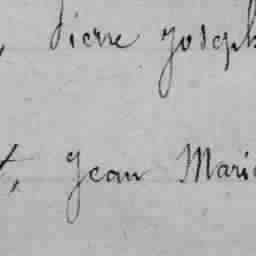 , Pierre Joseph
t, Jean Marie